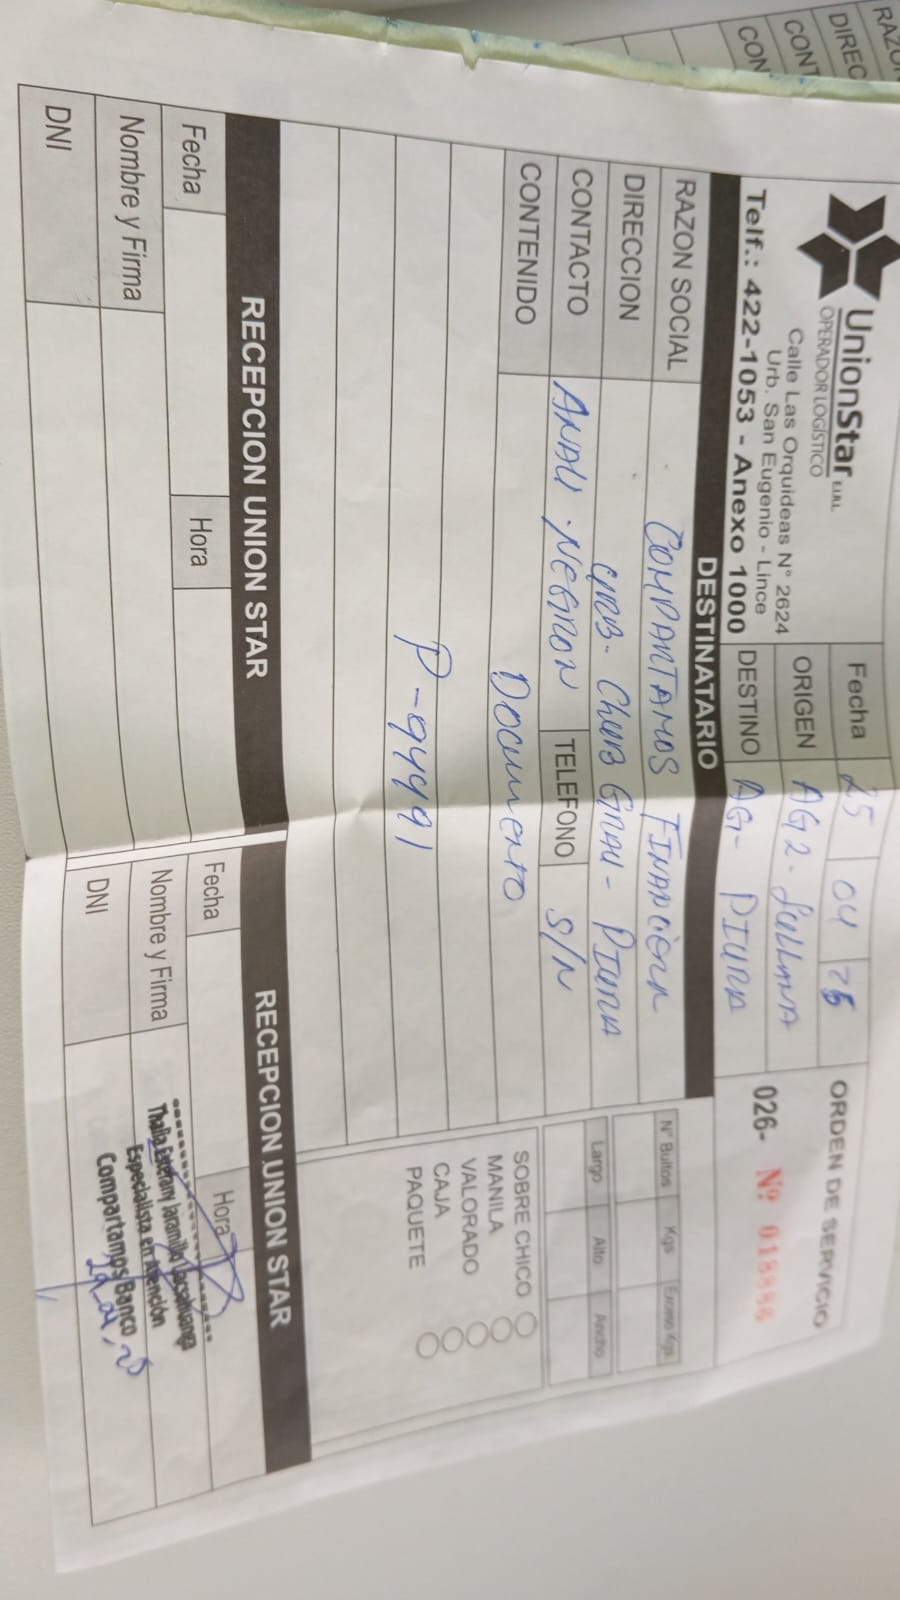 UnionStar E.I.R.L.
OPERADOR LOGÍSTICO
Calle Las Orquideas N° 2624
Urb. San Eugenio - Lince
Telf.: 422-1053 - Anexo 1000
Fecha 25 04 25
ORIGEN AG2. Sullana
DESTINO AG- PIURA
ORDEN DE SERVICIO
026- Nº 018886
DESTINATARIO
RAZON SOCIAL COMPARTAMOS FINANCIERA
DIRECCION URB- Club GRAU - PIURA
CONTACTO ANALI. NEGRON TELEFONO S/N
CONTENIDO Documento
P-99991
N° Bultos Kgs Exceso Kgs
Largo Alto Ancho
SOBRE CHICO
MANILA
VALORADO
CAJA
PAQUETE
RECEPCION UNION STAR
Fecha Hora
Nombre y Firma
DNI
RECEPCION UNION STAR
Fecha Hora
Nombre y Firma
DNI
Thalia Estefany Jaramillo
Especialista en Atención
Compartamos Banco
RAZON
DIREC
CONT
CON